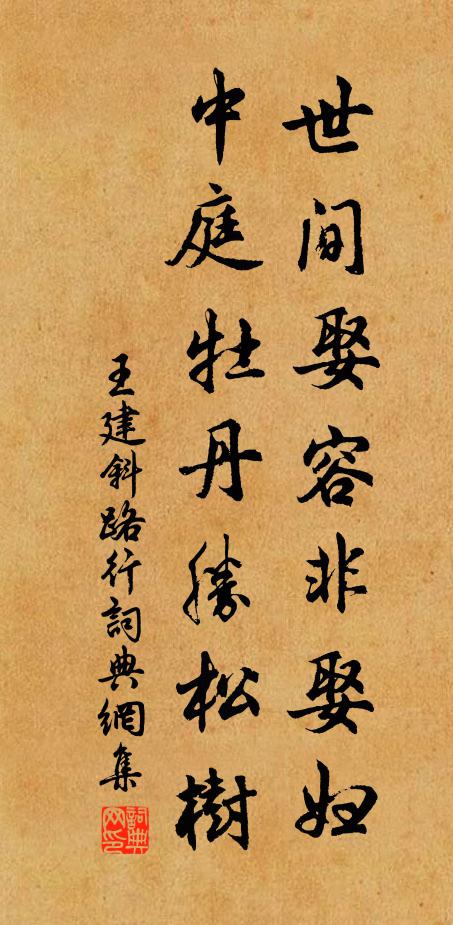 世间娶容非娶妇
中庭牡丹勝松樹
王建斜路行詞典網集
詞典網印